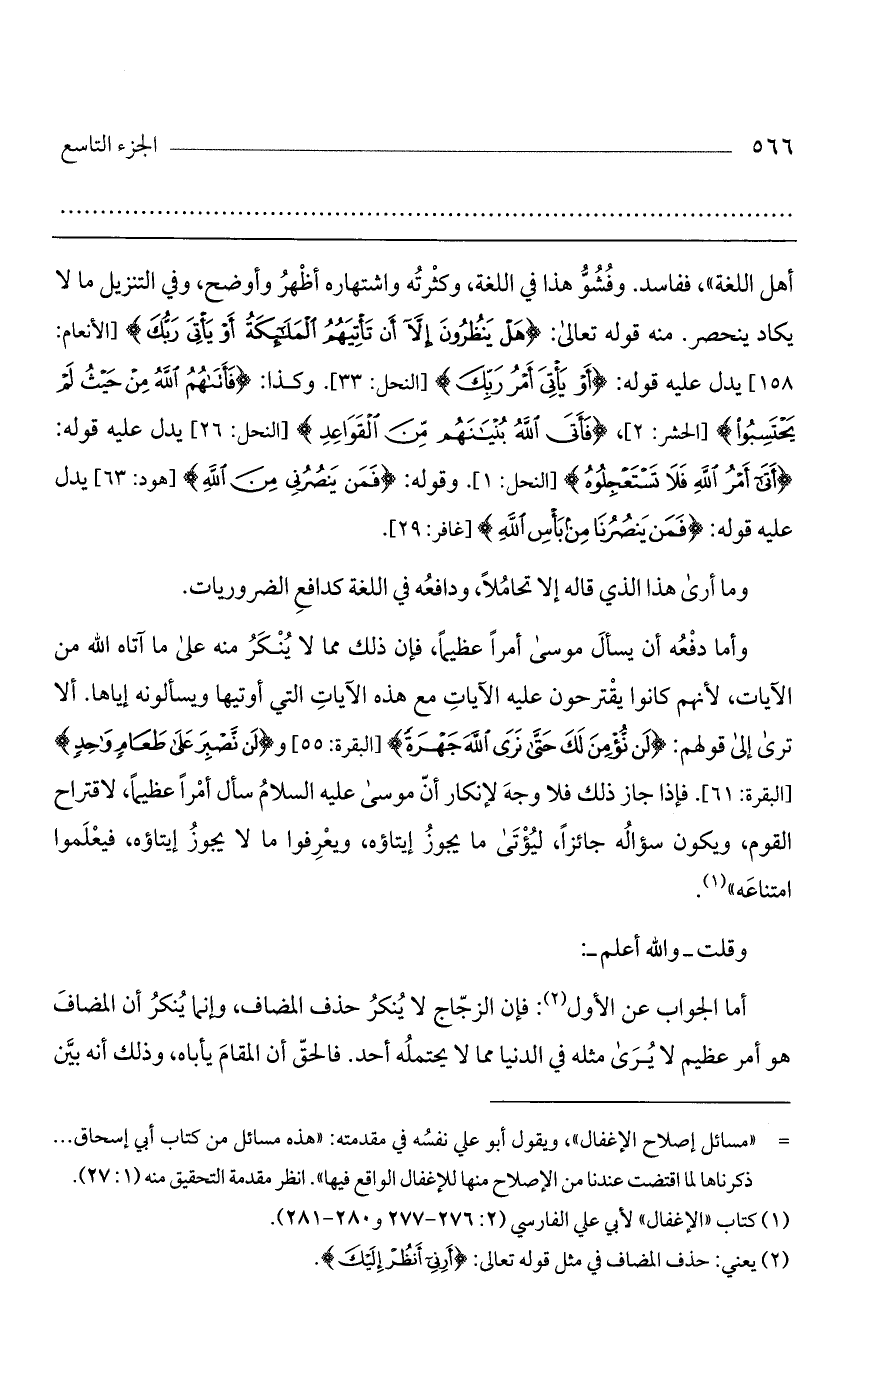 ٥٦٦ الجزء التاسع
أهل اللغة»، ففاسد. وفُشُوُّ هذا في اللغة، وكثْرتُه واشتهاره أظْهرُ وأوضح، وفي التنزيل ما لا
يكاد ينحصر. منه قوله تعالىٰ: ﴿هَلْ يَنظُرُونَ إِلَّآ أَن تَأْتِيَهُمُ ٱلْمَلَٰٓئِكَةُ أَوْ يَأْتِىَ رَبُّكَ﴾ [الأنعام:
١٥٨] يدل عليه قوله: ﴿أَوْ يَأْتِىَ أَمْرُ رَبِّكَ﴾ [النحل: ٣٣]. وكذا: ﴿فَأَتَىٰهُمُ ٱللَّهُ مِنْ حَيْثُ لَمْ
يَحْتَسِبُوا۟﴾ [الحشر: ٢]، ﴿فَأَتَى ٱللَّهُ بُنْيَٰنَهُم مِّنَ ٱلْقَوَاعِدِ﴾ [النحل: ٢٦] يدل عليه قوله:
﴿أَتَىٰٓ أَمْرُ ٱللَّهِ فَلَا تَسْتَعْجِلُوهُ﴾ [النحل: ١]. وقوله: ﴿فَمَن يَنصُرُنِى مِنَ ٱللَّهِ﴾ [هود: ٦٣] يدل
عليه قوله: ﴿فَمَن يَنصُرُنَا مِنۢ بَأْسِ ٱللَّهِ﴾ [غافر: ٢٩].
وما أرىٰ هذا الذي قاله إلا تحامُلاً، ودافعُه في اللغة كدافعِ الضروريات.
وأما دفْعُه أن يسألَ موسىٰ أمراً عظيماً، فإن ذلك مما لا يُنْكَرُ منه علىٰ ما آتاه الله من
الآيات، لأنهم كانوا يقْترحون عليه الآياتِ مع هذه الآياتِ التي أوتيها ويسألونه إياها. ألا
ترىٰ إلىٰ قولهم: ﴿لَن نُّؤْمِنَ لَكَ حَتَّىٰ نَرَى ٱللَّهَ جَهْرَةً﴾ [البقرة: ٥٥] و﴿لَن نَّصْبِرَ عَلَىٰ طَعَامٍ وَٰحِدٍ﴾
[البقرة: ٦١]. فإذا جاز ذلك فلا وجهَ لإنكار أنّ موسىٰ عليه السلامُ سأل أمْراً عظيماً، لاقتراح
القوم، ويكون سؤالُه جائزاً، ليُؤْتَىٰ ما يجوزُ إيتاؤه، ويعْرِفوا ما لا يجوزُ إيتاؤه، فيعْلَموا
امتناعَه»(١).
وقلت ـ والله أعلم ـ:
أما الجواب عن الأول(٢): فإن الزجّاج لا يُنكرُ حذف المضاف، وإنما يُنكرُ أن المضافَ
هو أمر عظيم لا يُرَىٰ مثله في الدنيا مما لا يحتملُه أحد. فالحقّ أن المقامَ يأباه، وذلك أنه بيَّن
= «مسائل إصلاح الإغفال»، ويقول أبو علي نفسُه في مقدمته: «هذه مسائل من كتاب أبي إسحاق...
ذكرناها لما اقتضت عندنا من الإصلاح منها للإغفال الواقع فيها». انظر مقدمة التحقيق منه (١: ٢٧).
(١) كتاب «الإغفال» لأبي علي الفارسي (٢: ٢٧٦-٢٧٧ و٢٨٠-٢٨١).
(٢) يعني: حذف المضاف في مثل قوله تعالى: ﴿أَرِنِىٓ أَنظُرْ إِلَيْكَ﴾.